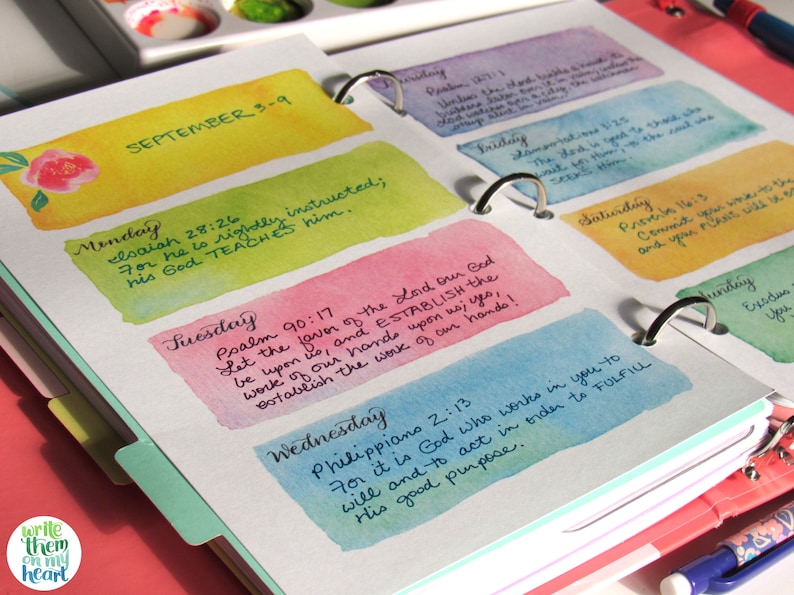 SEPTEMBER 3-9
Monday
Isaiah 28:26
For he is rightly instructed;
his God TEACHES him.
Tuesday
Psalm 90:17
Let the favor of the Lord our God
be upon us, and ESTABLISH the
work of our hands upon us; yes,
establish the work of our hands!
Wednesday
Philippians 2:13
For it is God who works in you to
will and to act in order to FULFILL
His good purpose.
Thursday
Psalm 127:1
Unless the Lord builds a house, its
builders labor over it in vain; unless the
Lord watches over a city, the watchman
stays alert in vain.
Friday
Lamentations 3:25
The Lord is good to those who
wait for Him, to the soul who
SEEKS Him.
Saturday
Proverbs 16:3
Commit your work to the
and your PLANS will be
Sunday
Exodus
You
write
them
on my
heart